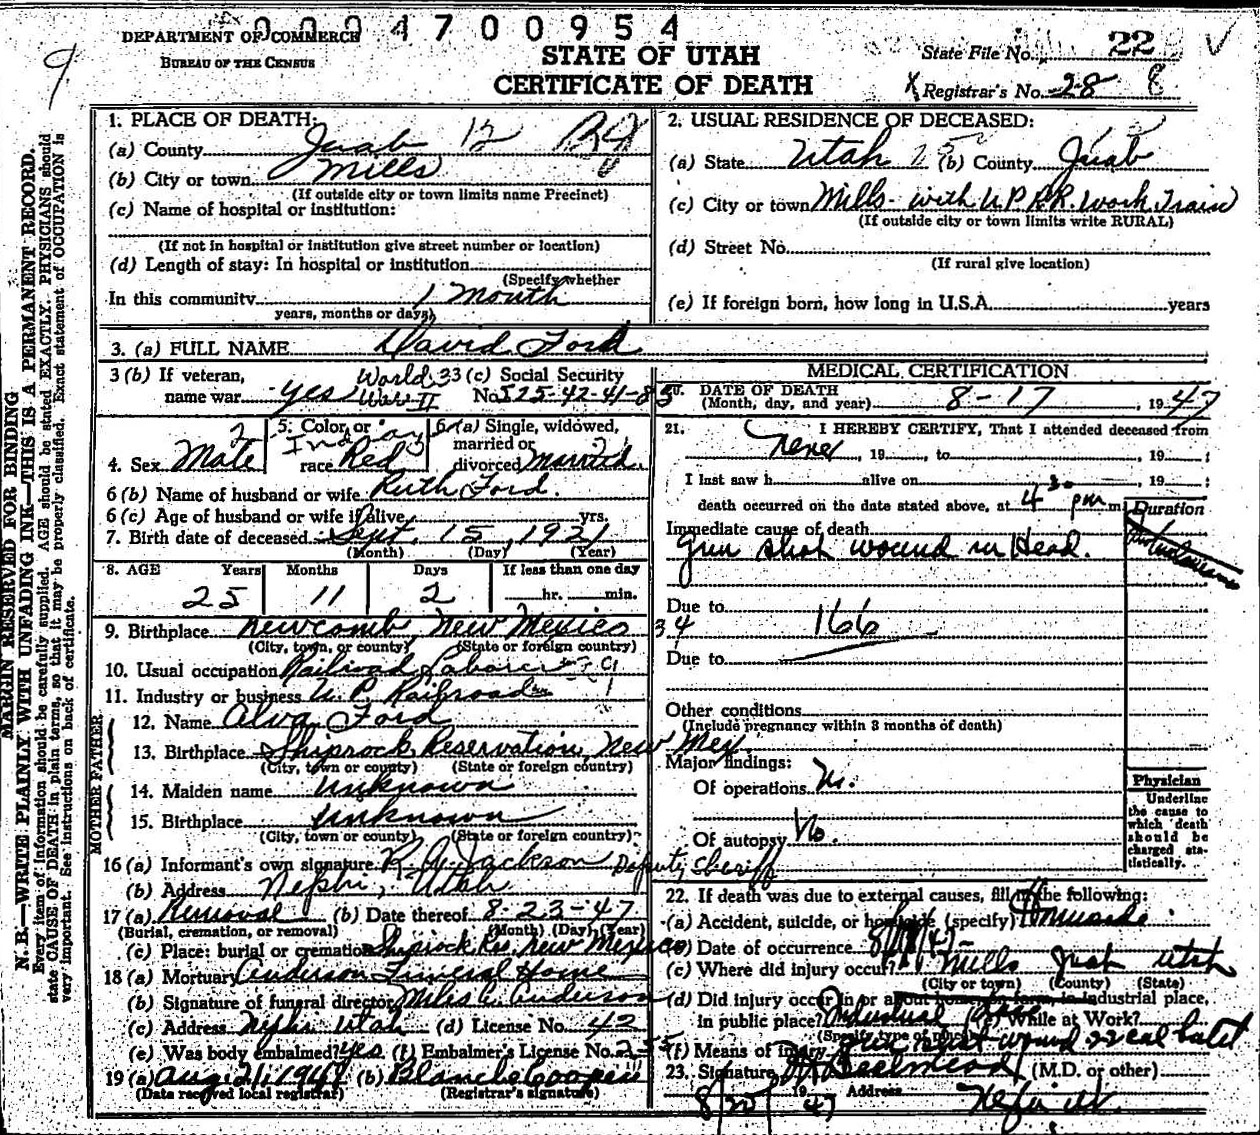 0 0 0 4 7 0 0 9 5 4
DEPARTMENT OF COMMERCE
BUREAU OF THE CENSUS
STATE OF UTAH
CERTIFICATE OF DEATH
State File No. 22
Registrar's No. 28 8
MARGIN RESERVED FOR BINDING
N. B.—WRITE PLAINLY, WITH UNFADING INK—THIS IS A PERMANENT RECORD.
Every item of information should be carefully supplied. AGE should be stated EXACTLY. PHYSICIANS should
state CAUSE OF DEATH in plain terms, so that it may be properly classified. Exact statement of OCCUPATION is
very important. See instructions on back of certificate.
1. PLACE OF DEATH:
(a) County Juab 12
(b) City or town Mills
(If outside city or town limits name Precinct)
(c) Name of hospital or institution:
(If not in hospital or institution give street number or location)
(d) Length of stay: In hospital or institution
(Specify whether
In this community 1 Month
years, months or days)
2. USUAL RESIDENCE OF DECEASED:
(a) State Utah (b) County Juab
(c) City or town Mills - with U.P.R.R. Work Train
(If outside city or town limits write RURAL)
(d) Street No.
(If rural give location)
(e) If foreign born, how long in U.S.A. years
3. (a) FULL NAME David Ford
3 (b) If veteran, name war yes World War II
3 (c) Social Security No. 525-42-41-85
4. Sex Male
5. Color or race Indian Red
6 (a) Single, widowed, married or divorced Married
6 (b) Name of husband or wife Ruth Ford.
6 (c) Age of husband or wife if alive yrs.
7. Birth date of deceased Sept. 15, 1921
(Month) (Day) (Year)
8. AGE Years Months Days If less than one day
25 11 2 hr. min.
9. Birthplace Newcomb, New Mexico
(City, town, or county) (State or foreign country)
10. Usual occupation Railroad Laborer
11. Industry or business U.P. Railroad
FATHER
12. Name Alva Ford
13. Birthplace Shiprock Reservation, New Mex.
(City, town or county) (State or foreign country)
MOTHER
14. Maiden name Unknown
15. Birthplace Unknown
(City, town or county) (State or foreign country)
16 (a) Informant's own signature R. A. Jackson Deputy Sheriff
(b) Address Nephi, Utah
17 (a) Removal (b) Date thereof 8-23-47
(Burial, cremation, or removal) (Month) (Day) (Year)
(c) Place: burial or cremation Shiprock Res. New Mexico
18 (a) Mortuary Anderson Funeral Home
(b) Signature of funeral director Miles C. Anderson
(c) Address Nephi Utah (d) License No. 42
(e) Was body embalmed? yes (f) Embalmer's License No. 255
19 (a) Aug 21, 1947 (b) Blanche Cooper
(Date received local registrar) (Registrar's signature)
MEDICAL CERTIFICATION
20. DATE OF DEATH
(Month, day, and year) 8-17, 1947
21. I HEREBY CERTIFY, That I attended deceased from
never, 19, to, 19;
I last saw h alive on, 19;
death occurred on the date stated above, at 4 30 pm m.
Duration
Immediate cause of death
Gun shot wound in Head.
Due to 166
34
Due to
Other conditions
(Include pregnancy within 3 months of death)
Major findings:
Of operations No.
Of autopsy No.
Physician
Underline the cause to which death should be charged statistically.
22. If death was due to external causes, fill in the following:
(a) Accident, suicide, or homicide (specify) Homicide
(b) Date of occurrence
(c) Where did injury occur? Mills Juab Utah
(City or town) (County) (State)
(d) Did injury occur in or about home, on farm, in industrial place,
in public place? Industrial place While at Work?
(Specify type of place)
(f) Means of injury Gun shot wound 22 cal
23. Signature (M.D. or other)
8/20/ 1947 Address Nephi Ut.